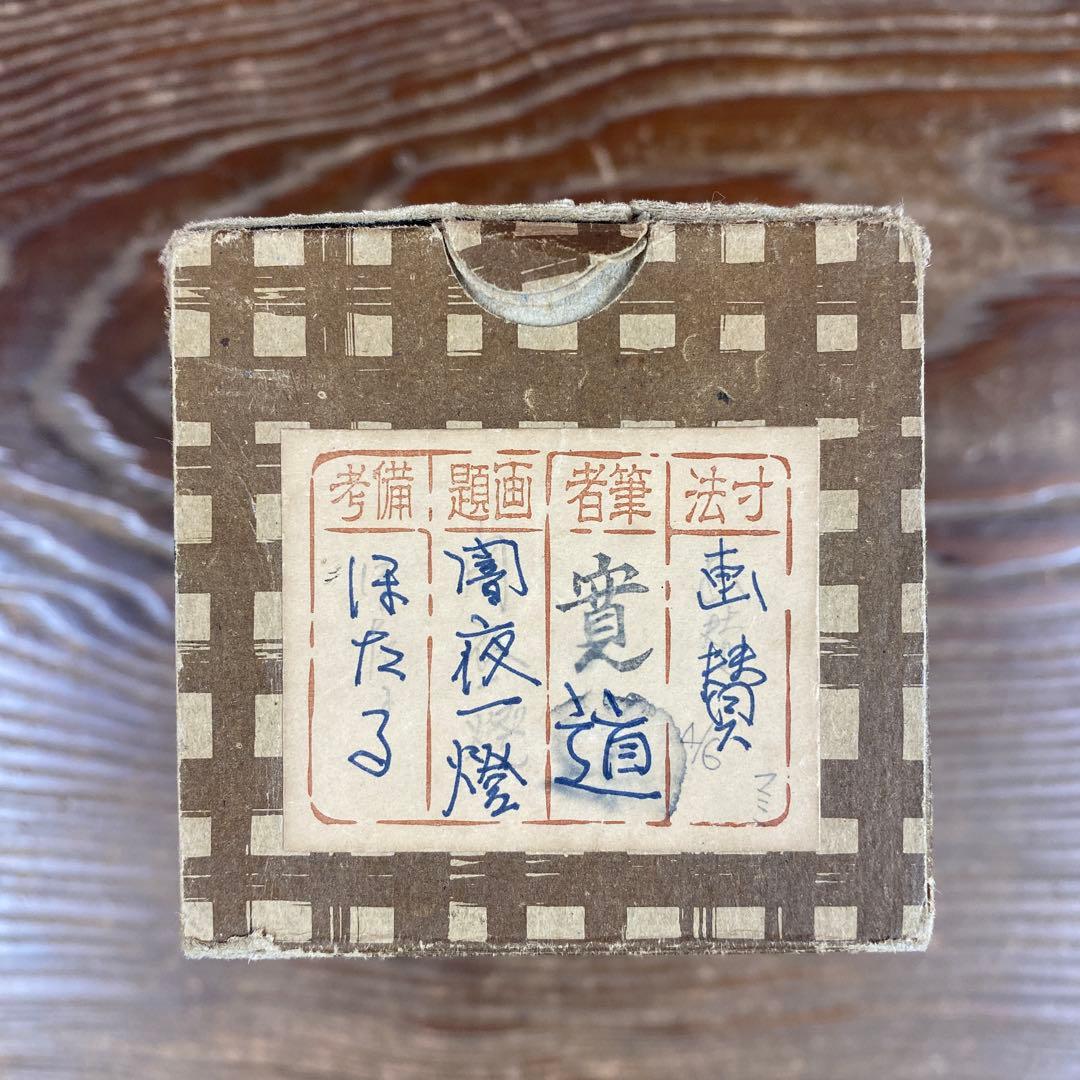 寸法
画賛
筆者
寛道
画題
闇夜一燈
備考
ほたる